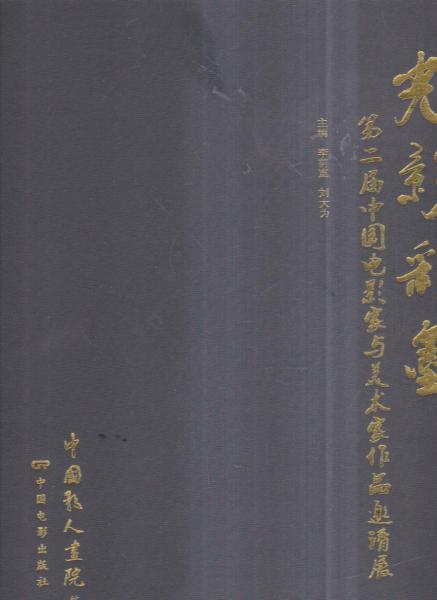 光影彩墨
第二届中国电影家与美术家作品邀请展
主编 李前宽 刘大为
中国影人画院
中国电影出版社